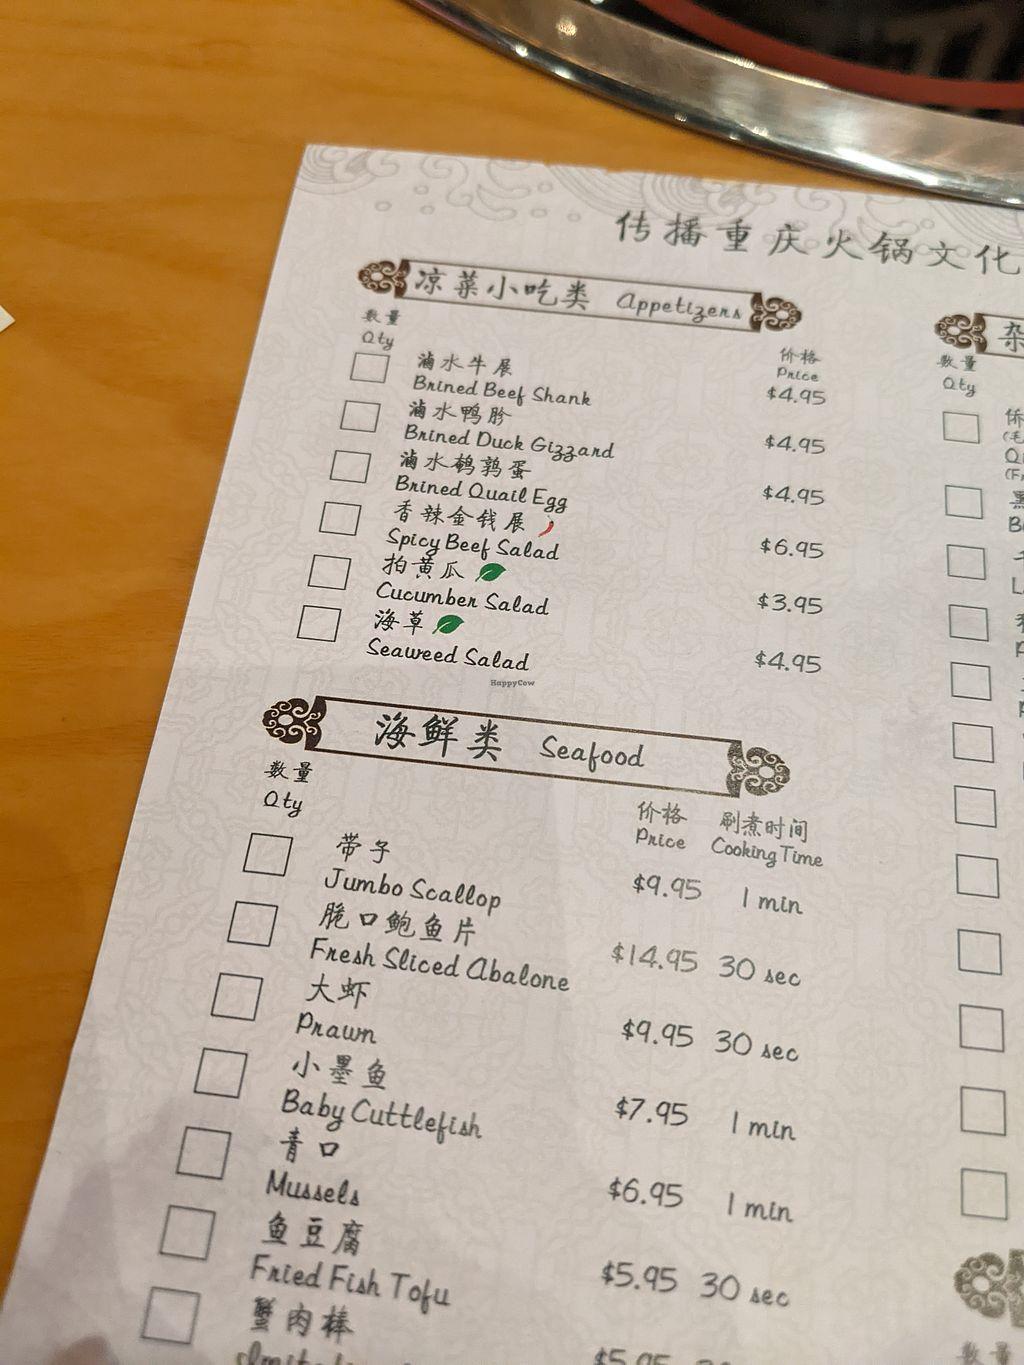 传播重庆火锅文化
凉菜小吃类 Appetizers
数量
Qty
价格
Price
滷水牛展
Brined Beef Shank $4.95
滷水鸭肫
Brined Duck Gizzard $4.95
滷水鹌鹑蛋
Brined Quail Egg $4.95
香辣金钱展
Spicy Beef Salad $6.95
拍黄瓜
Cucumber Salad $3.95
海草
Seaweed Salad $4.95
HappyCow
海鲜类 Seafood
数量
Qty
价格 刷煮时间
Price Cooking Time
带子
Jumbo Scallop $9.95 1 min
脆口鲍鱼片
Fresh Sliced Abalone $14.95 30 sec
大虾
Prawn $9.95 30 sec
小墨鱼
Baby Cuttlefish $7.95 1 min
青口
Mussels $6.95 1 min
鱼豆腐
Fried Fish Tofu $5.95 30 sec
蟹肉棒
$5.95
杂
数量
Qty
数量